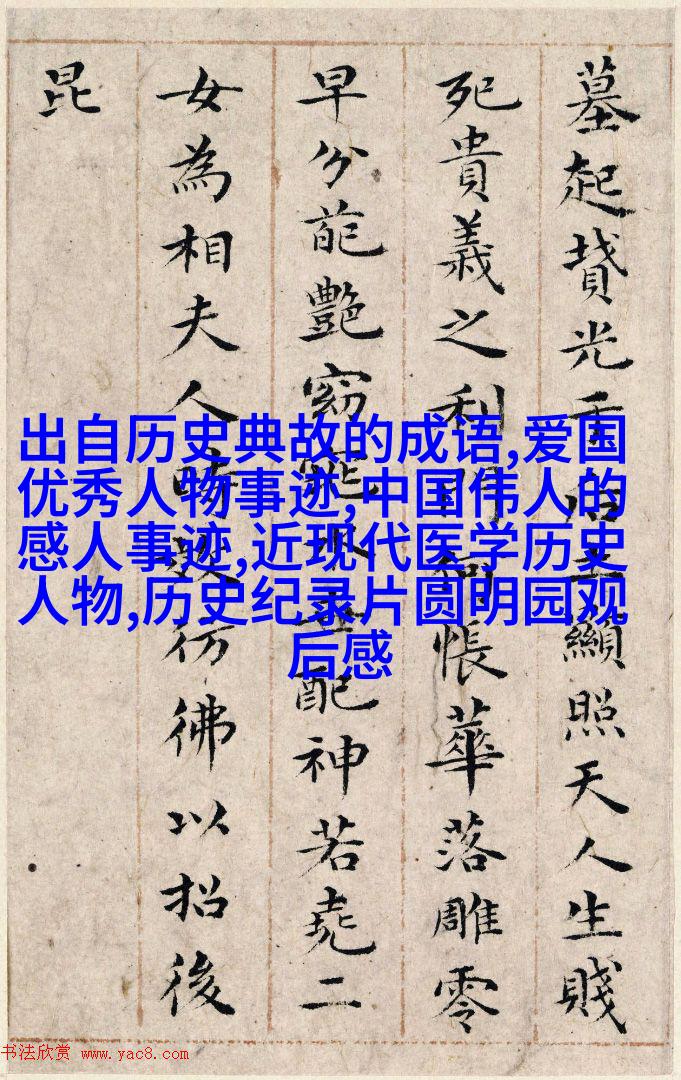 墓起墳光于后土顯照天人生賤
死貴義之利門何悵華落雕零
早分葩艷窈窕永世配神若堯二
女為相夫人時效彷彿以招後
昆
出自历史典故的成语,爱国
优秀人物事迹,中国伟人的
感人事迹,近现代医学历史
人物,历史纪录片圆明园观
后感
书法欣赏 www.yac8.com